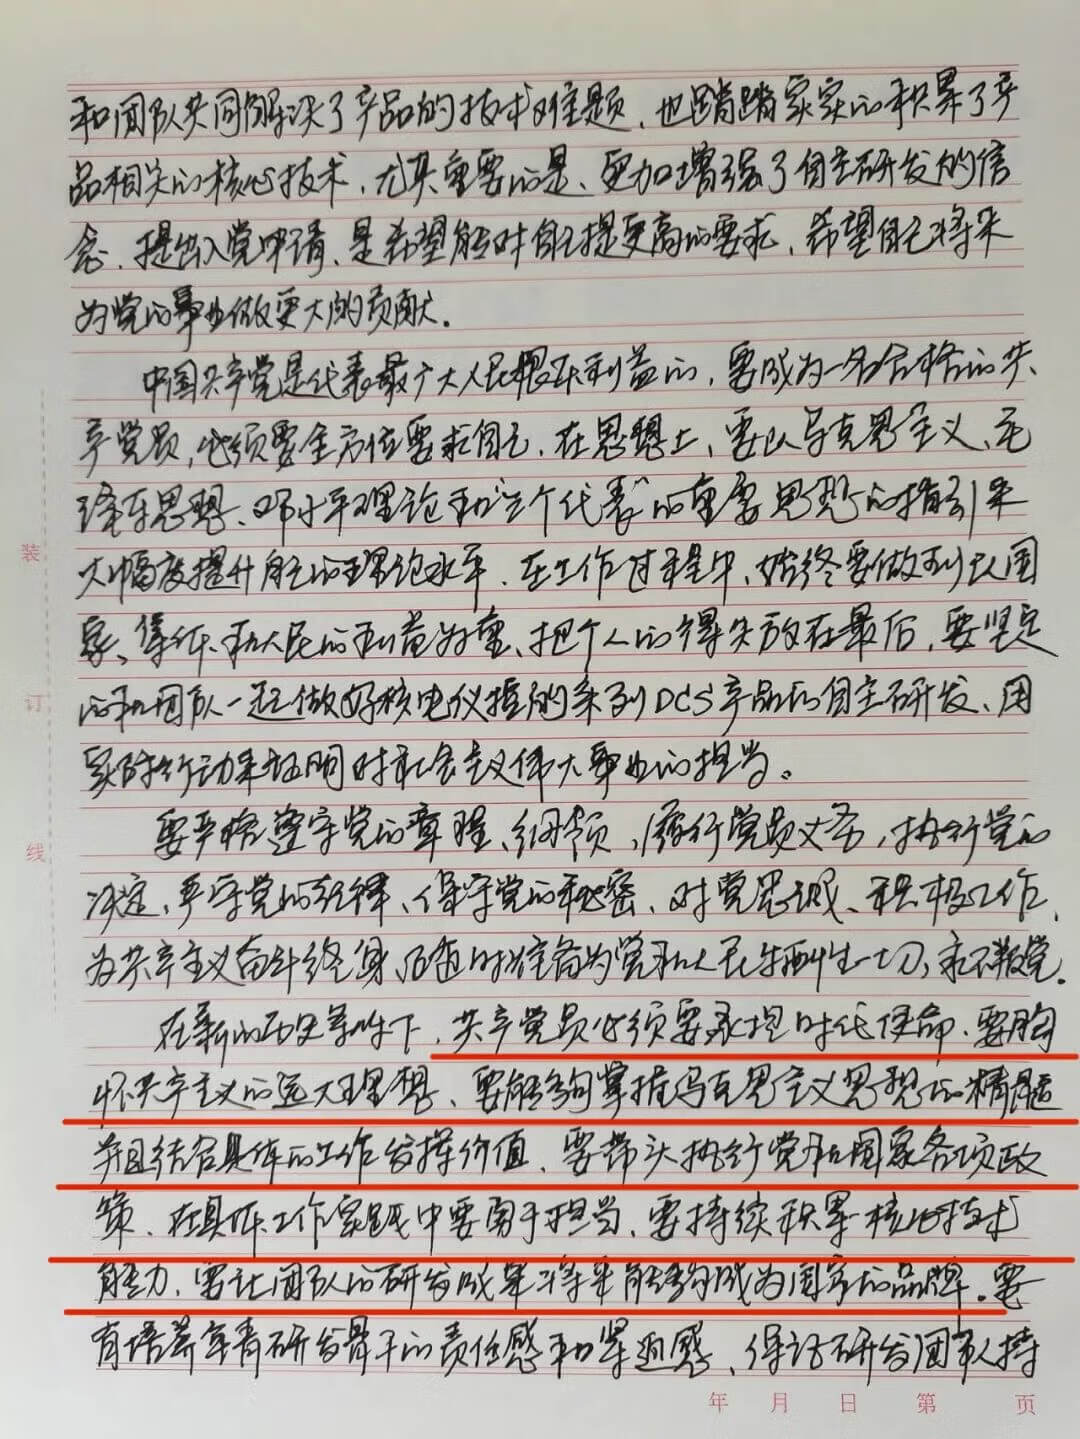 和团队共同解决了产品的技术难题，也踏踏实实的积累了产
品相关的核心技术，尤其重要的是、更加增强了自主研发的信
念．提出入党申请、是希望能对自己提更高的要求，希望自己将来
为党的事业做更大的贡献．
中国共产党是代表最广大人民根本利益的，要成为一名合格的共
产党员，必须要全方位要求自己．在思想上，要以马克思主义、毛
泽东思想、邓小平理论和“三个代表”的重要思想的指引来
大幅度提升自己的理论水平．在工作过程中、始终要做到以国
家、集体、和人民的利益为重、把个人的得失放在最后，要坚定
的和团队一起做好核电仪控的系列DCS产品的自主研发、用
实际行动来证明对社会主义伟大事业的担当。
要严格遵守党的章程、纲领，履行党员义务，执行党的
决定，严守党的纪律、保守党的秘密、对党忠诚、积极工作、
为共产主义奋斗终身，随时准备为党和人民牺牲一切，永不叛党．
在新的历史条件下，共产党员必须要承担时代使命．要胸
怀共产主义的远大理想、要能够掌握马克思主义思想的精髓
并且结合具体的工作发挥价值．要带头执行党和国家各项政
策、在具体工作实践中要勇于担当、要持续积累核心技术
能力，要让团队的研发成果将来能够成为国家的品牌．要
有培养年青研发骨干的责任感和紧迫感、保证研发团队持
装
订
线
年 月 日 第 页